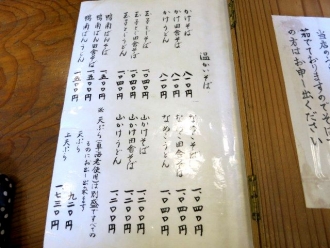 温かいそば
かけそば 八二〇円
かけ田舎そば 八二〇円
かけうどん 八二〇円
玉子とじそば 一、〇四〇円
玉子とじ田舎そば 一、〇四〇円
玉子とじうどん 一、〇四〇円
鴨南ばんそば 一、五〇〇円
鴨南ばん田舎そば 一、五〇〇円
鴨南ばんうどん 一、五〇〇円
なめこそば 一、〇四〇円
なめこ田舎そば 一、〇四〇円
なめこうどん 一、〇四〇円
山かけそば 一、二〇〇円
山かけ田舎そば 一、二〇〇円
山かけうどん 一、二〇〇円
※天ぷら(車海老使用)は別盛ですべての
ものにお出し出来ます
天ぷら 九二〇円
上天ぷら 一、七三〇円
の方はお申し出ください